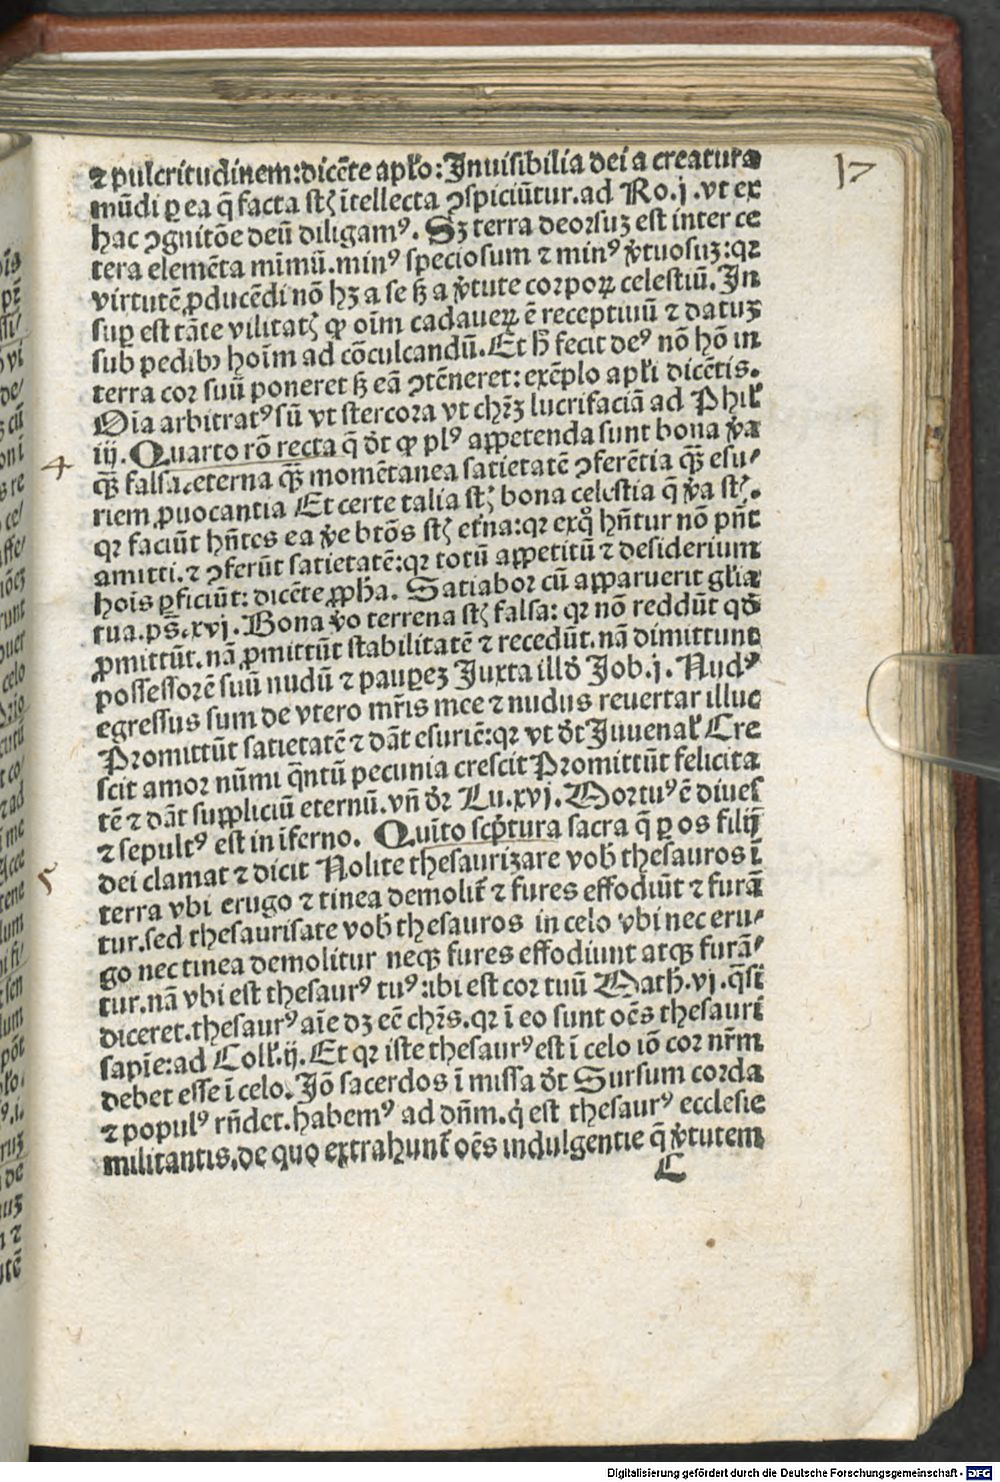 17
⁊ pulcritudinem: dicẽte apl̃o: Inuisibilia dei a creatura
mũdi ꝑ ea q̃ facta st̃ ĩtellecta ꝯspiciũtur. ad Ro. j. vt ex
hac ꝯgnitõe deũ diligamꝰ. Sꝫ terra deorsuꝫ est inter ce
tera elemẽta mĩmũ. minꝰ speciosum ⁊ minꝰ v̾tuosuꝫ: qꝛ
virtutẽ ꝓducẽdi nõ hꝫ a se ß a v̾tute corpoꝝ celestiũ. In
suꝑ est tãte vilitatꝭ ꝙ oĩm cadaueꝝ ẽ receptiuũ ⁊ datuꝫ
sub pedibꝰ hoĩm ad cõculcandũ. Et h̃ fecit deꝰ nõ hõ in
terra cor suũ poneret ß eã ꝯtẽneret: exẽplo apl̃i dicẽtis.
Oĩa arbitratꝰ sũ vt stercora vt chr̃ꝫ lucrifaciã ad Phil̃
4
iij. Quarto rõ recta q̃ dt̃ ꝙ plꝰ appetenda sunt bona v̾a
qꝫ̃ falsa. eterna qꝫ̃ momẽtanea satietatẽ ꝯferẽtia qꝫ̃ esu⸗
riem ꝓuocantia Et certe talia stꝭ bona celestia q̃ v̾a stꝭ.
qꝛ faciũt hñtes ea v̾e btõs stꝭ et̾na: qꝛ exq̊ hñtur nõ pñt
amitti. ⁊ ꝯferũt satietatẽ: qꝛ totũ appetitũ ⁊ desiderium
hoĩs ꝑficiũt: dicẽte ꝓpha. Satiabor cũ apparuerit gl̃ia
tua. ps̃. xvj. Bona v̾o terrena stꝭ falsa: qꝛ nõ reddũt qd̾
ꝓmittũt. nã ꝓmittũt stabilitatẽ ⁊ recedũt. nã dimittunt
possessorẽ suũ nudũ ⁊ pauꝑeꝫ Juxta illd̾ Job. j. Nudꝰ
egressus sum de vtero mr̃is mee ⁊ nudus reuertar illuc
Promittũt satietatẽ ⁊ dãt esuriẽ: qꝛ vt dt̃ Juuenal̃ Cre
scit amor nũmi q̃ntũ pecunia crescit Promittũt felicita
tẽ ⁊ dãt suppliciũ eternũ. vñ dr̃ Lu. xvj. Mortuꝰ ẽ diues
⁊ sepultꝰ est in ĩferno. Quĩto scp̃tura sacra q̃ ꝑ os filij
5
dei clamat ⁊ dicit Nolite thesaurizare vob̃ thesauros ĩ
terra vbi erugo ⁊ tinea demolit̃ ⁊ fures effodiũt ⁊ furã
tur. sed thesaurisate vob̃ thesauros in celo vbi nec eru⸗
go nec tinea demolitur neqꝫ fures effodiunt atqꝫ furã⸗
tur. nã vbi est thesaurꝰ tuꝰ: ibi est cor tuũ Math̃. vj. q̃si
diceret. thesaurꝰ aĩe dꝫ eẽ chr̃s. qꝛ ĩ eo sunt oẽs thesauri
sapĩe: ad Coll̃. ij. Et qꝛ iste thesaurꝰ est ĩ celo iõ cor nr̃m
debet esse ĩ celo. Jõ sacerdos ĩ missa dt̃ Sursum corda
⁊ populꝰ rñdet. habemꝰ ad dñm. q̇ est thesaurꝰ ecclesie
militantis. de quo extrahunt̃ oẽs indulgentie q̃ v̾tutem
C
Digitalisierung gefördert durch die Deutsche Forschungsgemeinschaft - DFG